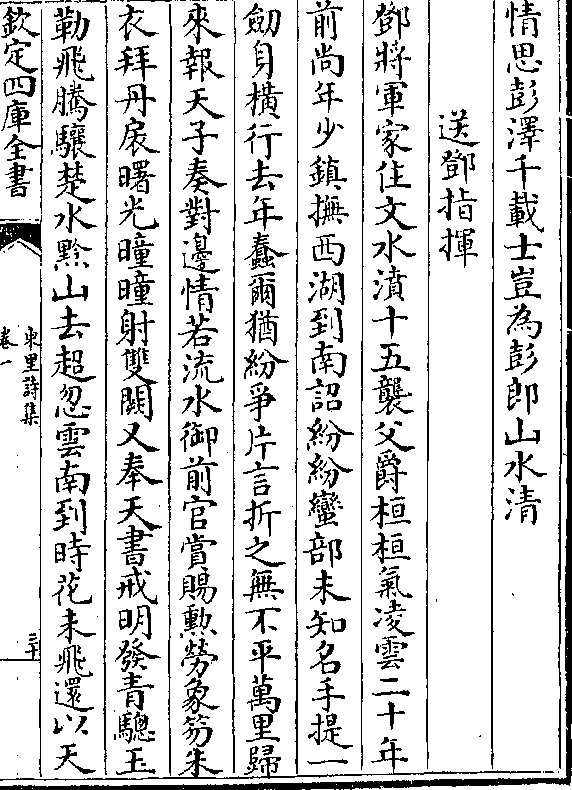 情思彭澤千載士豈為彭郎山水清
送鄧指揮
鄧將軍家住文水濆十五襲父爵桓桓氣凌雲二十年
前尚年少鎮撫西湖到南詔紛紛蠻部未知名手提一
劒自橫行去年蠢爾猶紛爭片言折之無不平萬里歸
來報天子奏對邊情若流水御前官賞賜勲勞象笏朱
衣拜丹扆曙光曈曈射雙闕又奉天書戒明發青驄玉
勒飛騰驤楚水黔山去超忽雲南到時花未飛還以天
欽定四庫全書
東里詩集
卷一
三十